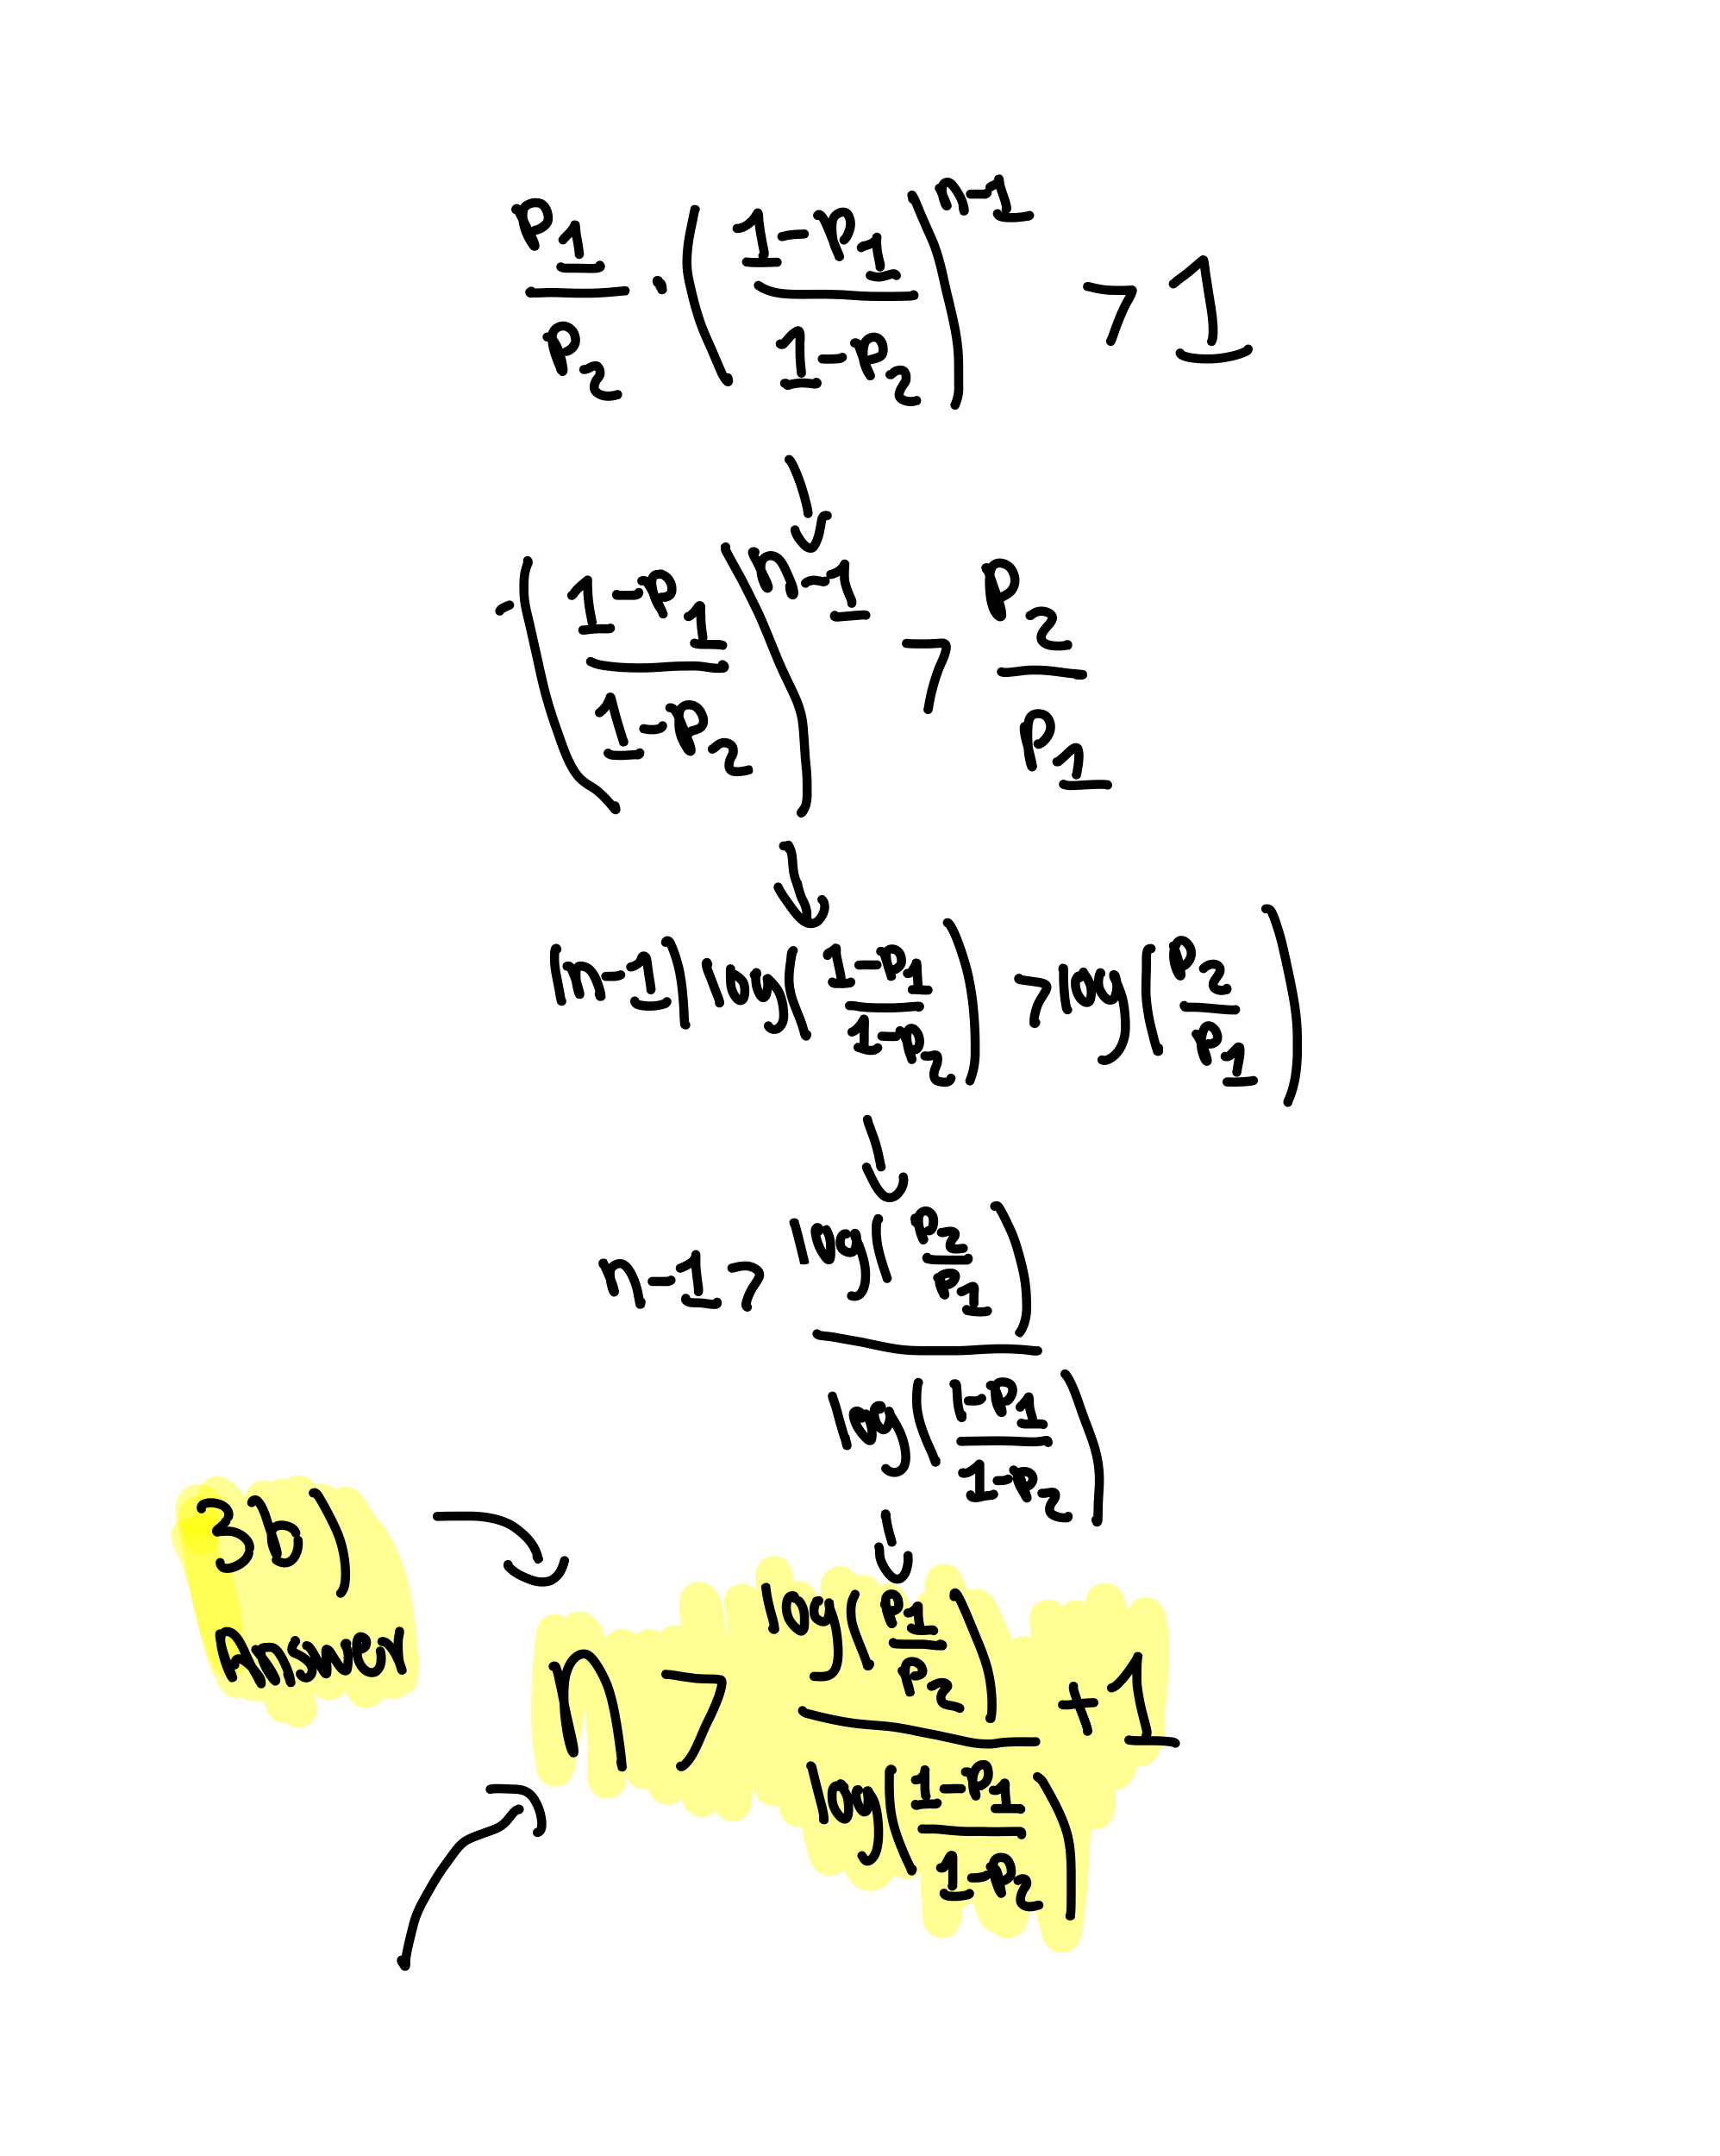 P₁/P₂ · ((1-P₁)/(1-P₂))ⁿ⁻¹ > 1
((1-P₁)/(1-P₂))ⁿ⁻¹ > P₂/P₁
(n-1) log((1-P₁)/(1-P₂)) > log(P₂/P₁)
n-1 > log(P₂/P₁) / log((1-P₁)/(1-P₂))
3b)
Answer
n > log(P₁/P₂) / log((1-P₁)/(1-P₂)) + 1